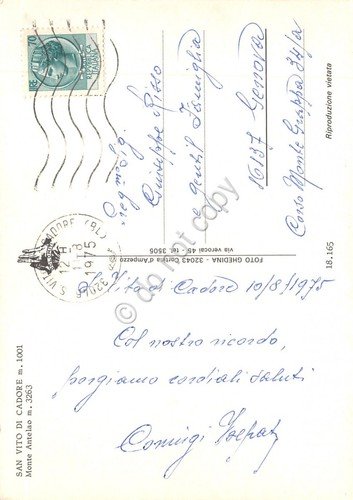 S. Vito di Cadore 10/8/1975
Col nostro ricordo,
porgiamo cordiali saluti
Preg.mo Sig.
Giuseppe Risso
e gentil Famiglia
16137 Genova
Corso Monte Grappa 34/a
SAN VITO DI CADORE m. 1001
Monte Antelao m. 3263
FOTO GHEDINA - 32043 Cortina d'Ampezzo
via verocai 45 - tel. 3505
18.165
Riproduzione vietata
70
CADORE (BL)
1975
do not copy